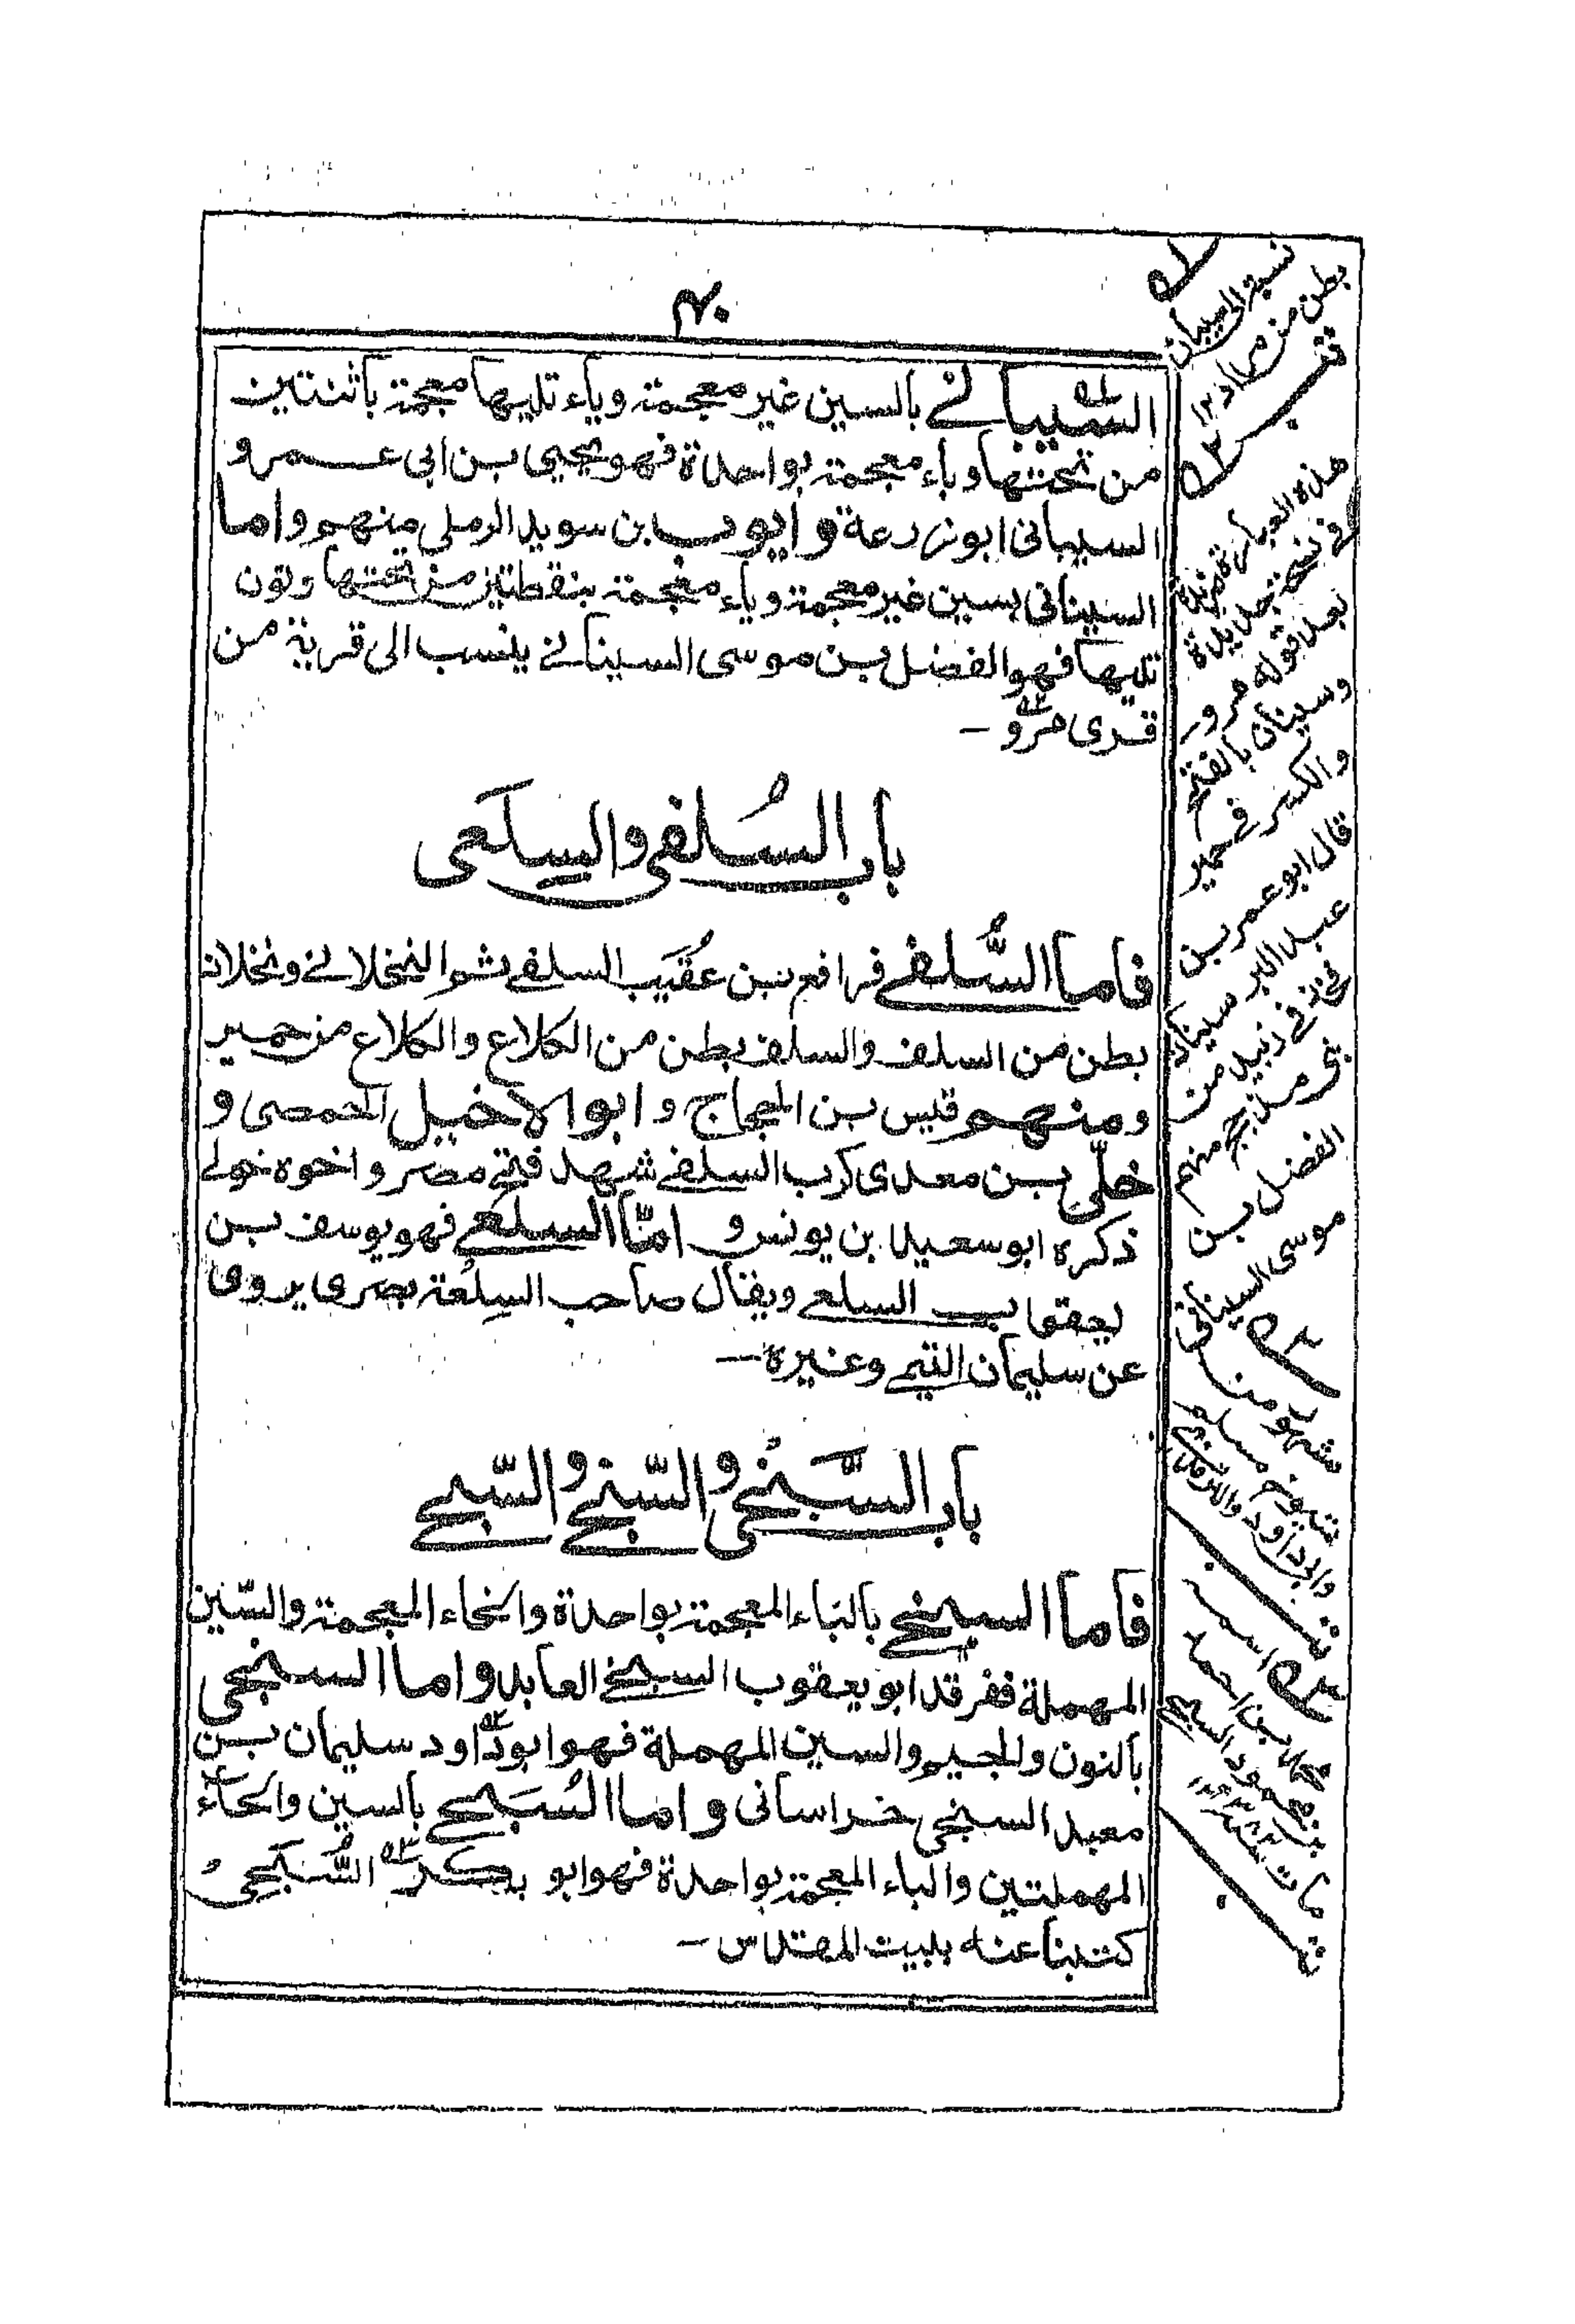 ۴۰
السيبانے بالسين غير معجمة وياء تليها معجمة باثنتين
من تحتها وباء معجمة بواحدة فهو يحيى بن ابى عمرو
السيبانى ابو زرعة و ايوب بن سويد الرملى منهم واما
السينانى بسين غير معجمة وياء معجمة بنقطتين من تحتها ونون
تليها فهو الفضل بن موسى السينانے ينسب الى قرية من
قرى مرو ـ
باب السُلفى والسلعى
فاما السُّلفے فرافع بن عُقَيب السلفے ثم النخلانے ونخلان
بطن من السلف والسلف بطن من الكلاع والكلاع من حمير
ومنهم قيس بن الحجاج و ابو الاخيل الحمصى و
خلّى بن معدى كرب السلفے شهد فتح مصر و اخوه خولے
ذكره ابو سعيد بن يونس و امّا السلعے فهو يوسف بن
يعقوب السلعے ويقال صاحب السلعة بصرى يروى
عن سليمان التيمے وغيره ـ
باب السَّبَخى و السّنجے و السّبحے
فاما السبخے بالباء المعجمة بواحدة والخاء المعجمة والسّين
المهملة ففرقد ابو يعقوب السبخے العابد واما السنجى
بالنون والجيم والسين المهملة فهو ابو داود سليمان بن
معبد السنجى خراسانى و اما السُبَحے بالسين والحاء
المهملتين والباء المعجمة بواحدة فهو ابو بكر السُّبَحىُ
كتبنا عنه ببيت المقدس ـ
نسبة الى سيبان
بطن من مراد ١٢
هذه العبارة مزيدة
فى نسخة جديدة
بعد قوله مرو
وسينان بالفتح
والكسر فے حمير
قال ابو عمر بن
عبد البر سينان
فخذ فے زبيد من
مذحج منهم
الفضل بن
موسى السينانى
مشهور من
شيوخ مسلم
وابى داود والترمذى
محمد بن احمد